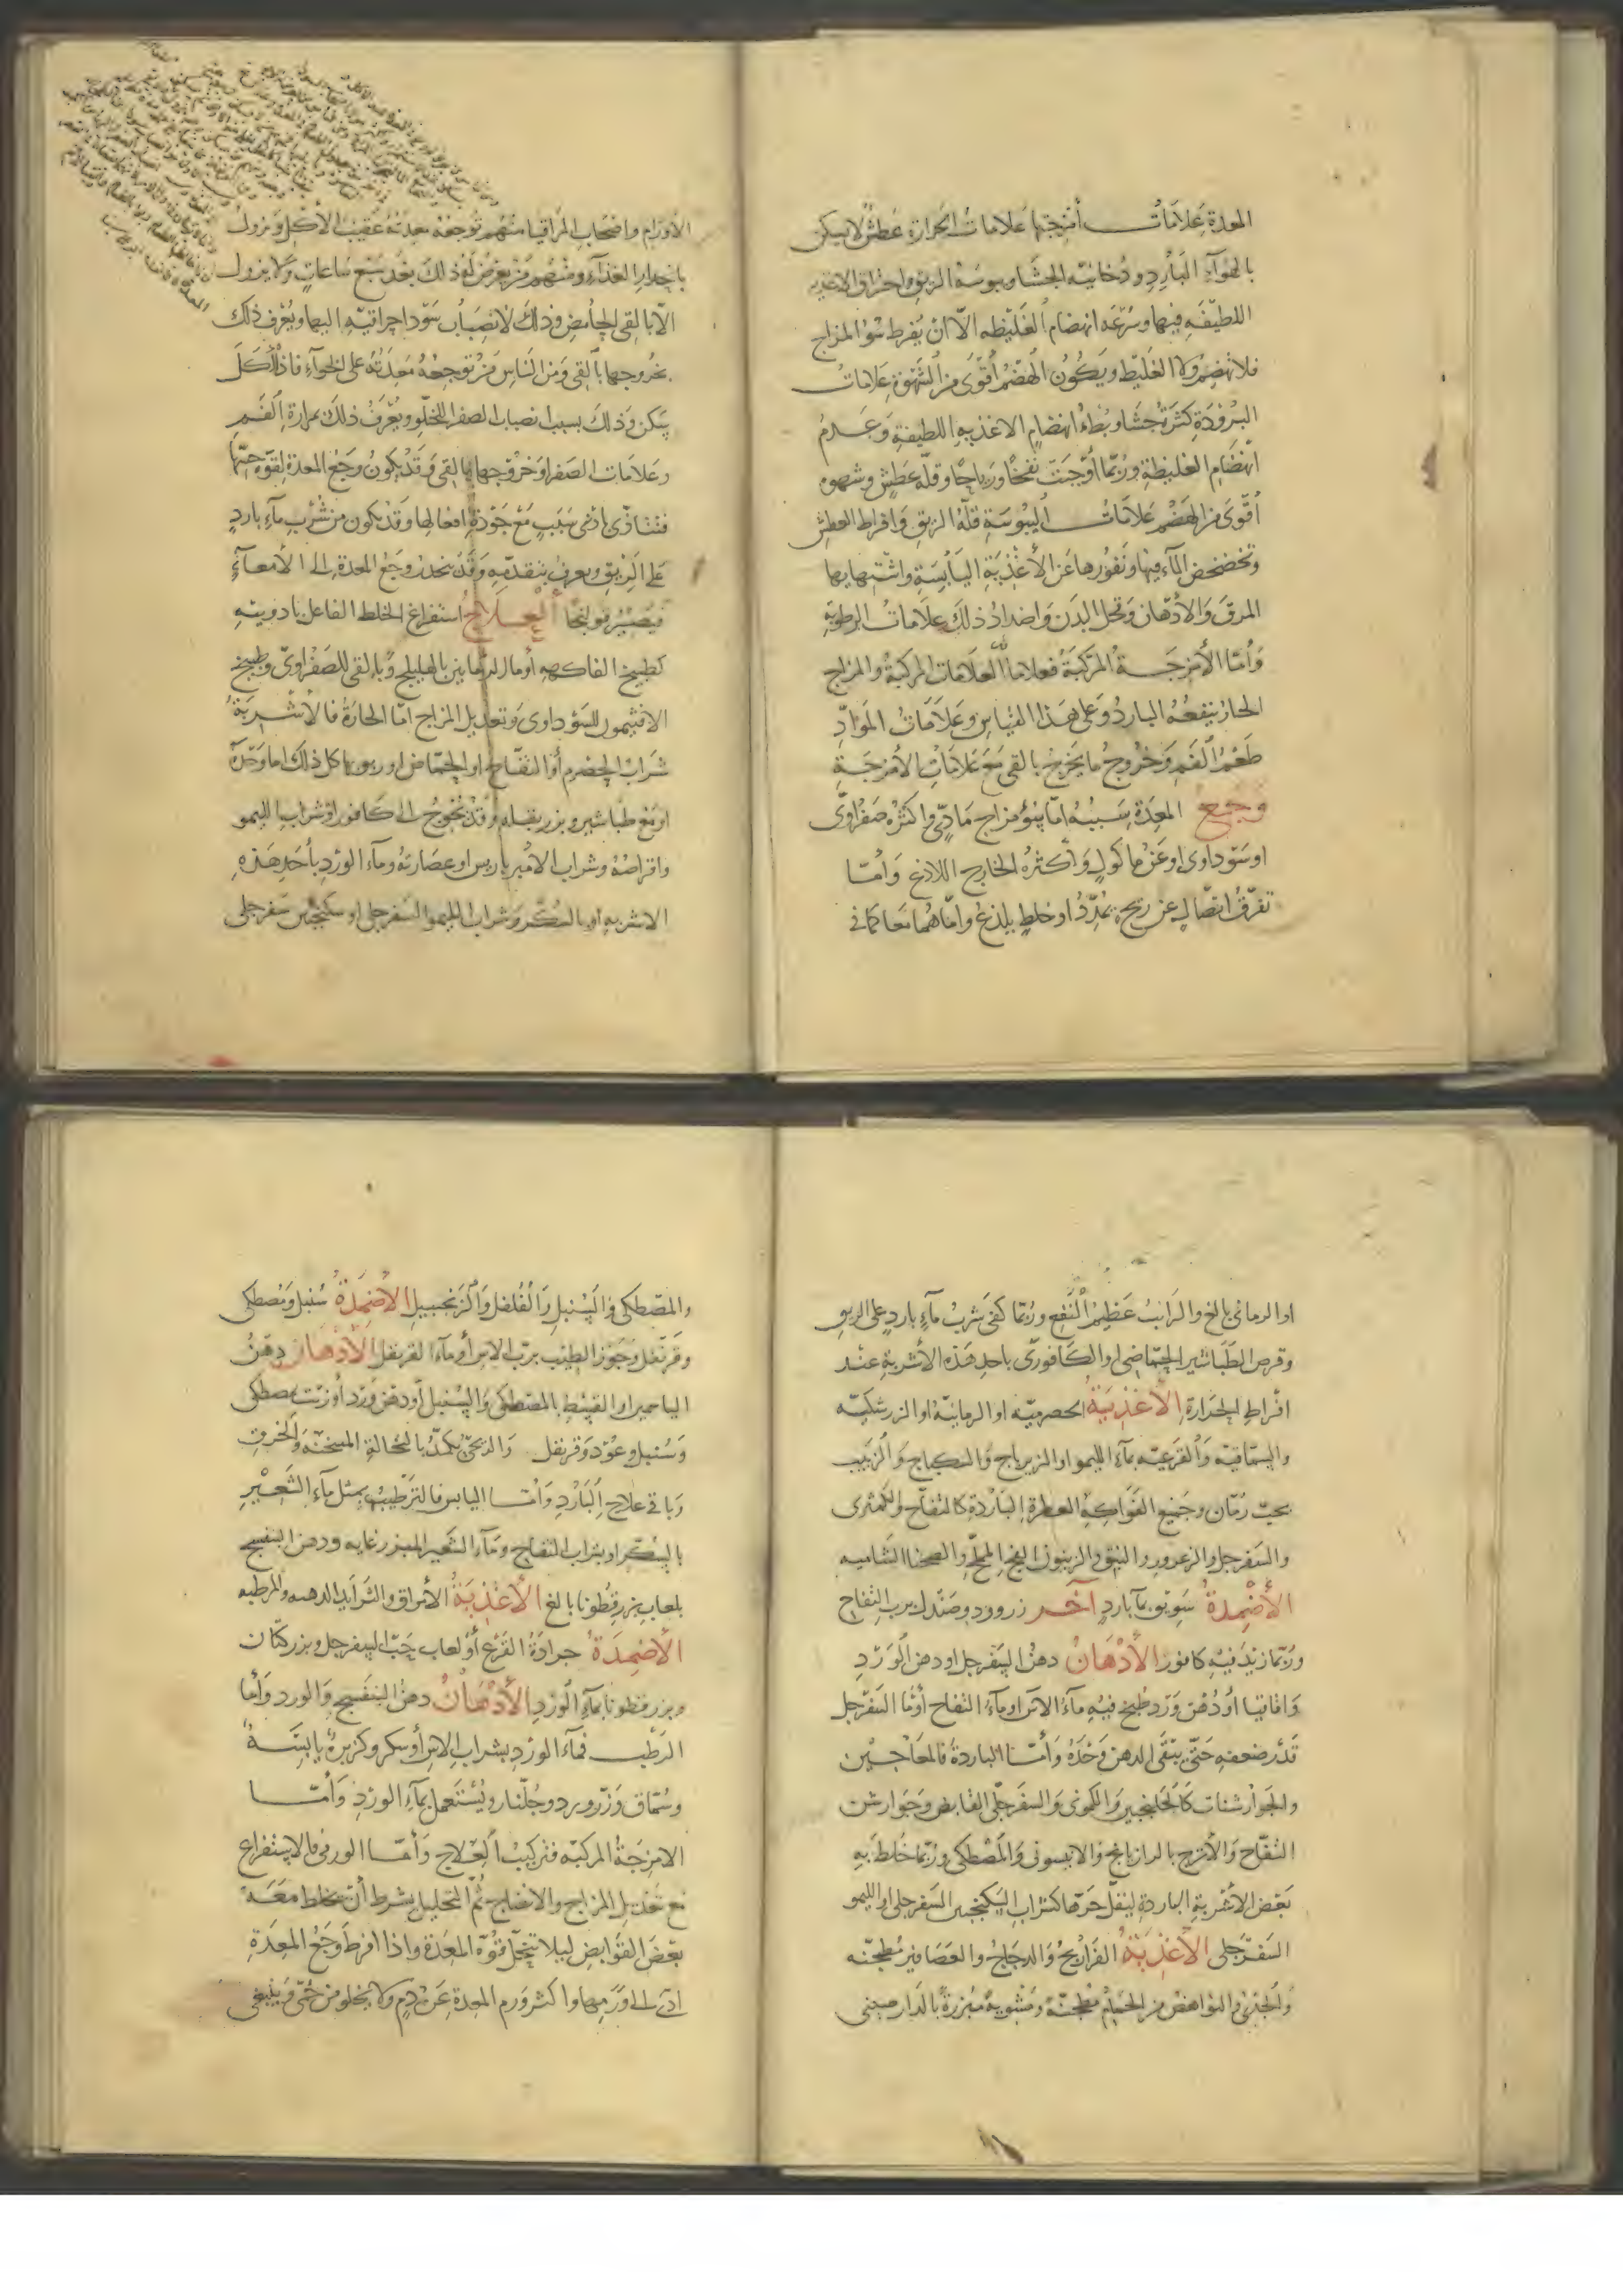 المعدة علامات أمزجتها علامات الحرارة عطش لا يسكن
بالهواء البارد ودخانية الجشا ويبوسة الريق واحتراق الاغذيه
اللطيفه فيها وسرعه انهضام الغليظه الا ان يفرط سو المزاج
فلا تهضم ولا الغليظ ويكون الهضم أقوى من الشهوة علامات
البرودة كثرة جشا وبطء انهضام الاغذيه اللطيفة وعدم
انهضام الغليظة وربما أوجبت نفخا ورياحا وقلة عطش وشهوه
أقوى من الهضم علامات اليبوسة قلة الريق وافراط العطش
وتخضخض الماء فيها ونفورها عن الأغذية اليابسة واشتهايها
المرق والأدهان ونحل البدن واضداد ذلك علامات الرطوبه
وأما الأمزجة المركبة فعلاماتها العلامات المركبة والمزاج
الحار ينفعه البارد وعلى هذا القياس وعلامات المواد
طعم الفم وخروج ما يخرج بالقي مع علامات الأمزجة
وجع المعدة سببه اما سؤ مزاج مادي واكثره صفراوى
اوسوداوى اوعن ماكول وأكثره الخارج اللاذع وأما
تفرق اتصال عن ريح يمدد او خلط يلذع واماهما معا كما في
الأورام واصحاب المراقيا منهم توجعه معدته عقيب الأكل ويزول
بانحدار الغذاء ومنهم من يعرض له ذلك بعد سبع ساعات ولا يزول
الا بالقى الحامض وذلك لانصباب سودا احراقيه اليها ويعرف ذلك
بخروجها بالقى ومن الناس من توجعه معدته على الخواء فاذا أكل
سكن وذلك بسبب انصباب الصفرا للخلو ويعرف ذلك بمرارة الفم
وعلامات الصفرا وخروجها بالقى وقد يكون وجع المعدة لقوه حسها
فتتاذى بادنى سبب مع جودة افعالها وقد يكون من شرب ماء بارد
على الريق ويعرف بتقدمه وقد ينحدر وجع المعدة الى الأمعاء
فيصير قولنجا العلاج استفراغ الخلط الفاعل بادويته
كطبيخ الفاكهه أوماء الرمانين بالهليلج وبالقى للصفراوى وطبيخ
الافتيمون للسوداوى وتعديل المزاج اما الحارة فالأشربة
شراب الحصرم أو التفاح او الحماض اوريوبها كل ذلك اما وحده
اومع طباشير وبزر بقله وقد تحوج الى كافور اوشراب الليمو
واقراصه وشراب الامبرباريس اوعصارته وماء الورد بأحد هذه
الاشربه او بالسكر وشراب الليمو السفرجلى اوسكنجبين سفرجلى
او الرمانى بالغ والرايب عظيم النفع وربما كفى شرب ماء بارد على الريق
وقرص الطباشير الحماضى او الكافورى باحد هذه الأشربة عند
افراط الحرارة الأغذية الحصرميه او الرمانية او الزرشكيه
والسماقيه والقرعيه بماء الليمو او الزيرباج والسكباج والزبيب
بحب رمان وجميع الفواكه العطرة الباردة كالتفاح والكمثرى
والسفرجل والزعرور والنبق والزيتون الفج المملح والصحنا الشاميه
الأضمدة سويق بماء بارد آخر زرورد وصندل برب التفاح
وربما زيد فيه كافور الأدهان دهن السفرجل اودهن الورد
واقاقيا أو دهن ورد طبخ فيه ماء الاس اوماء التفاح أوماء السفرجل
قدر ضعفه حتى يبقى الدهن وحده وأما الباردة فالمعاجين
والجوارشنات كالجلنجبين والكمونى والسفرجلى القابض وجوارشن
التفاح والأترج بالرازيانج والانيسون والمصطكى وربما خلط به
بعض الأشربة الباردة لتقل حرها كشراب السكنجبين السفرجلى او الليمو
السفرجلى الأغذية الفراريج والدجاج والعصافير مطجنه
والجدى والنواهض من الحمام مطجنة ومشوية مبزرة بالدارصينى
والمصطكى والسنبل والفلفل والزنجبيل الأضمدة سنبل ومصطكى
وقرنفل وجوز الطيب برب الاس أوماء القرنفل الأدهان دهن
الياسمين او القسط بالمصطكى والسنبل أودهن ورد أوزيت بمصطكى
وسنبل وعود وقرنفل والريحى يكمد بالنخالة المسخنه والخرق
وباقى علاج البارد وأما اليابس فالترطيب بمثل ماء الشعير
بالسكر اوبشراب التفاح وماء الشعير المبزر غايه ودهن البنفسج
بلعاب بزر قطونا بالغ الأغذية الأمراق والثرايد الدهنه والمرطبه
الأضمدة جرادة القرع أولعاب حب السفرجل وبزر كتان
وبزر قطونا بماء الورد الأدهان دهن البنفسج والورد وأما
الرطب فماء الورد بشراب الاس أوسكر وكزبرة يابسة
وسماق وزر ورد وجلنار ويستعمل بماء الورد وأما
الامزجة المركبه فتركيب العلاج وأما الورمى فالاستفراغ
مع تعديل المزاج والانضاج ثم التحليل بشرط أن يخلط معه
بعض القوابض ليلا تتحلل قوة المعدة واذا افرط وجع المعدة
ادى الى اورمها واكثر ورم المعدة عن دم ولا يخلو من حمى وينبغى